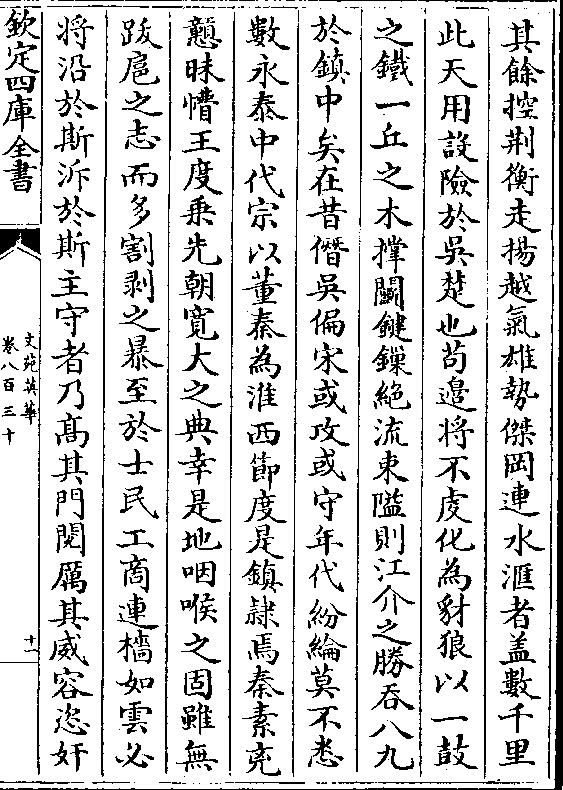 其餘控荆衡走揚越氣雄勢傑岡連水滙者盖數千里
此天用設險於吳楚也苟邉将不䖍化為豺狼以一鼓
之鐵一丘之木撑關鍵鏁絶流東隘則江介之勝吞八九
於鎮中矣在昔僭吳偏宋或攻或守年代紛綸莫不悉
數永泰中代宗以董秦為淮西節度是鎮隷焉秦素兖
戅昧懵王度乗先朝寛大之典幸是地咽喉之固雖無
䟦扈之志而多割剥之暴至於士民工商連檣如雲必
将沿於斯泝於斯主守者乃髙其門閲厲其威容恣奸
欽定四庫全書
文苑英華
卷八百三十
十一